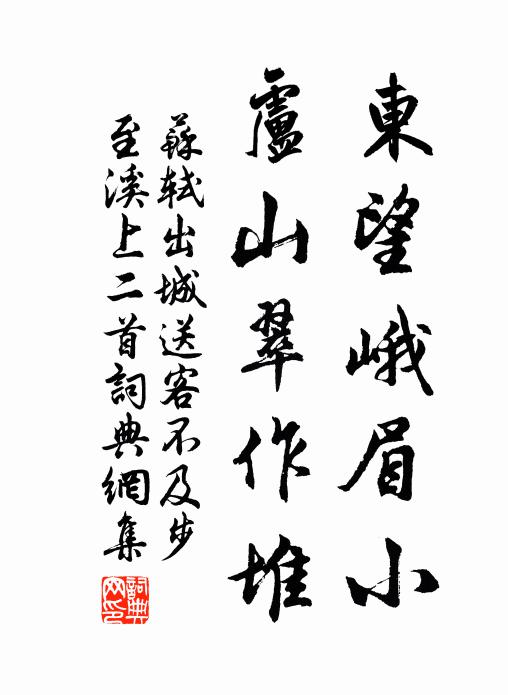 東望峨眉小
盧山翠作堆
蘇軾出城送客不及步
至溪上二首詞典網集
詞典網印